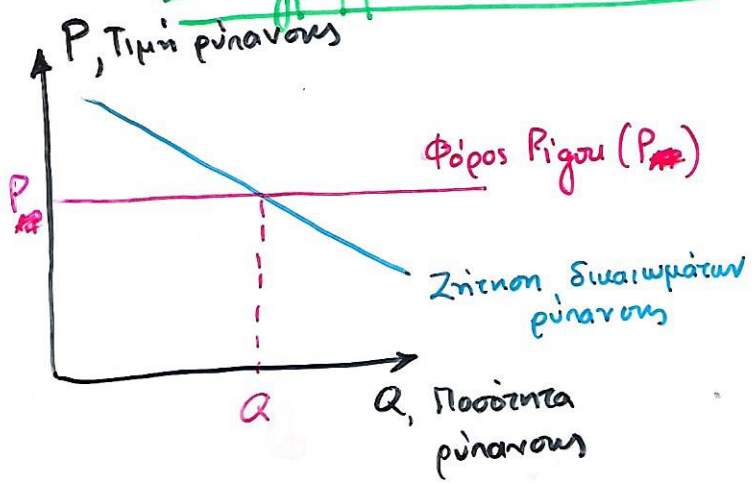 P, Τιμή ρύπανσης
Φόρος Pigou (P)
P
Ζήτηση δικαιωμάτων
ρύπανσης
Q
Q, Ποσότητα
ρύπανσης